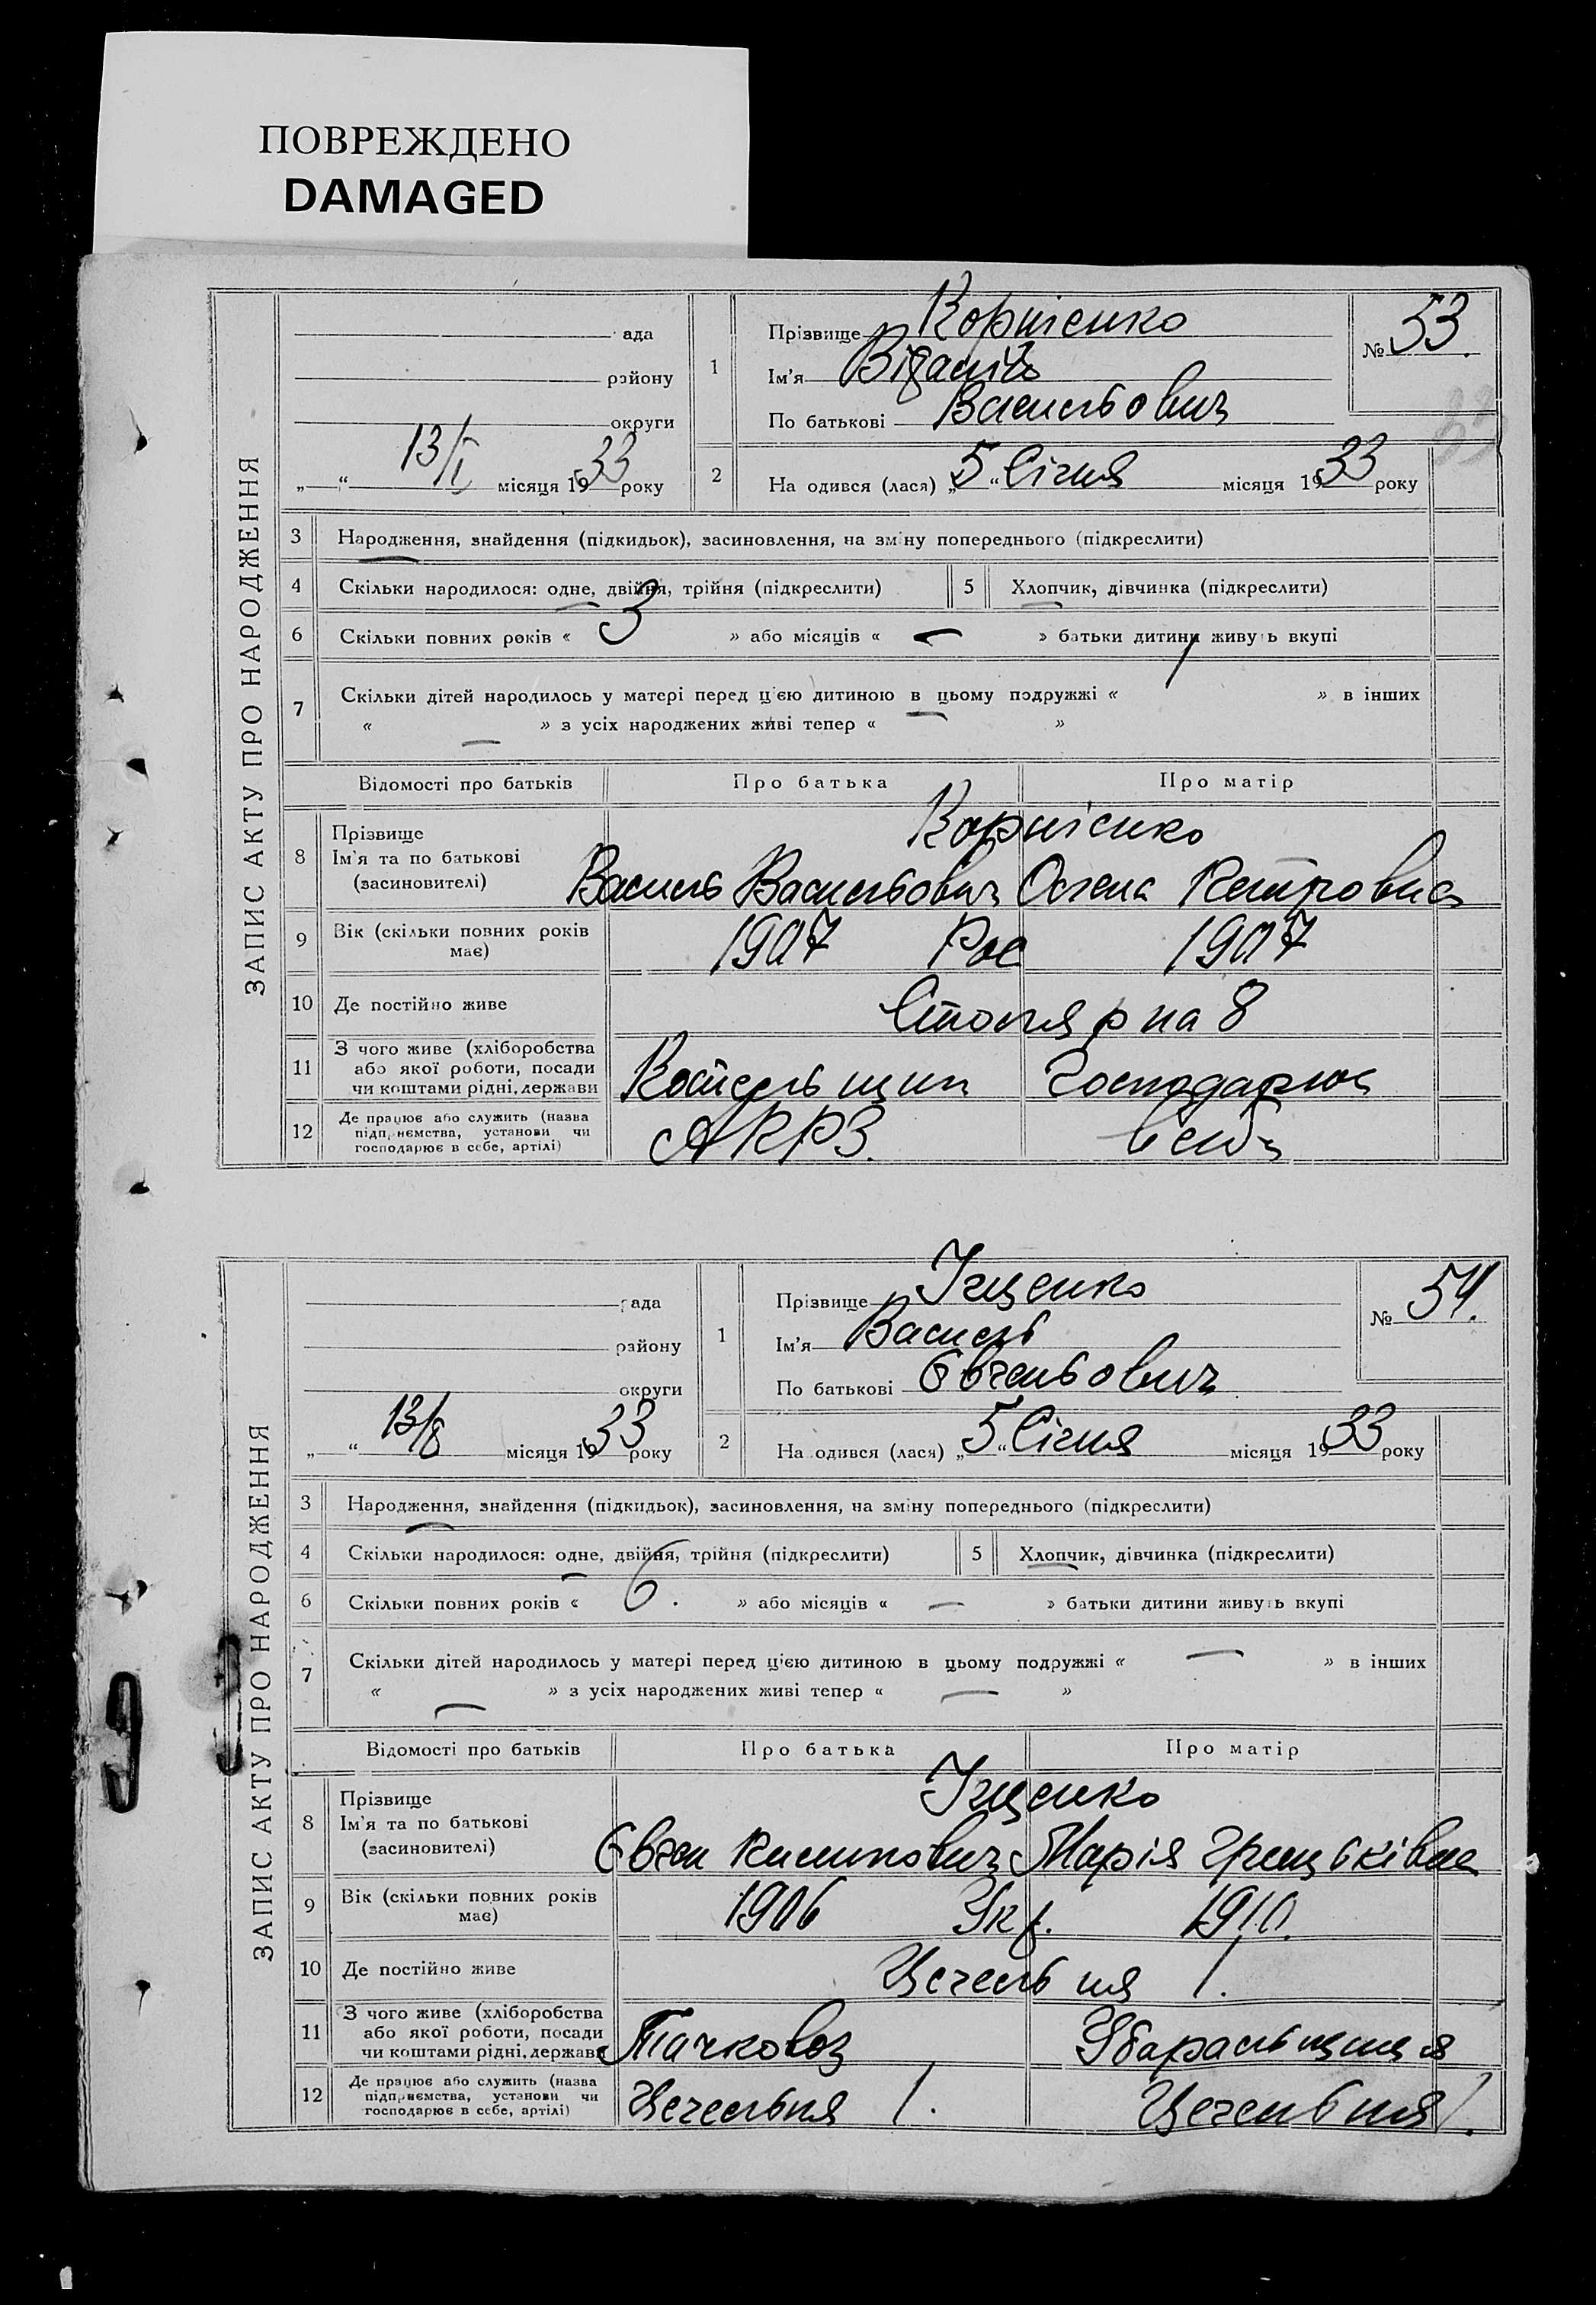 ПОВРЕЖДЕНО
DAMAGED
ЗАПИС АКТУ ПРО НАРОДЖЕННЯ
ада
району
округи
„ “ 13/I місяця 1933 року
1
Прізвище Корнієнко
Ім'я Віталій
По батькові Васильович
№ 53.
2
На одився (лася) „5“ Січня місяця 1933 року
3 Народження, знайдення (підкидьок), засиновлення, на зміну попереднього (підкреслити)
4 Скільки народилося: одне, двійня, трійня (підкреслити) 5 Хлопчик, дівчинка (підкреслити)
6 Скільки повних років « 3 » або місяців « — » батьки дитини живуть вкупі
7 Скільки дітей народилось у матері перед цією дитиною в цьому подружжі « 1 » в інших
« — » з усіх народжених живі тепер « — »
Відомості про батьків Про батька Про матір
8 Прізвище Корнієнко
Ім'я та по батькові
(засиновителі) Василь Васильович Олена Петровна
9 Вік (скільки повних років має) 1907 Рос 1907
10 Де постійно живе Столярна 8
11 З чого живе (хліборобства
або якої роботи, посади
чи коштами рідні, держави Котельщик Господарює
12 Де працює або служить (назва
підприємства, установи чи
господарює в себе, артілі) АКРЗ. в себе
ЗАПИС АКТУ ПРО НАРОДЖЕННЯ
рада
району
округи
„ “ 13/I місяця 1933 року
1
Прізвище Іщенко
Ім'я Василь
По батькові Євгеньович
№ 54.
2
На одився (лася) „5“ Січня місяця 1933 року
3 Народження, знайдення (підкидьок), засиновлення, на зміну попереднього (підкреслити)
4 Скільки народилося: одне, двійня, трійня (підкреслити) 5 Хлопчик, дівчинка (підкреслити)
6 Скільки повних років « 6. » або місяців « — » батьки дитини живуть вкупі
7 Скільки дітей народилось у матері перед цією дитиною в цьому подружжі « — » в інших
« — » з усіх народжених живі тепер « — »
Відомості про батьків Про батька Про матір
8 Прізвище Іщенко
Ім'я та по батькові
(засиновителі) Євген Пилипович Марія Грицьківна
9 Вік (скільки повних років має) 1906 Укр. 1910.
10 Де постійно живе Цегельня 1.
11 З чого живе (хліборобства
або якої роботи, посади
чи коштами рідні, держави Тачковоз Убиральщиця
12 Де працює або служить (назва
підприємства, установи чи
господарює в себе, артілі) Цегельня 1. Цегельня 1.